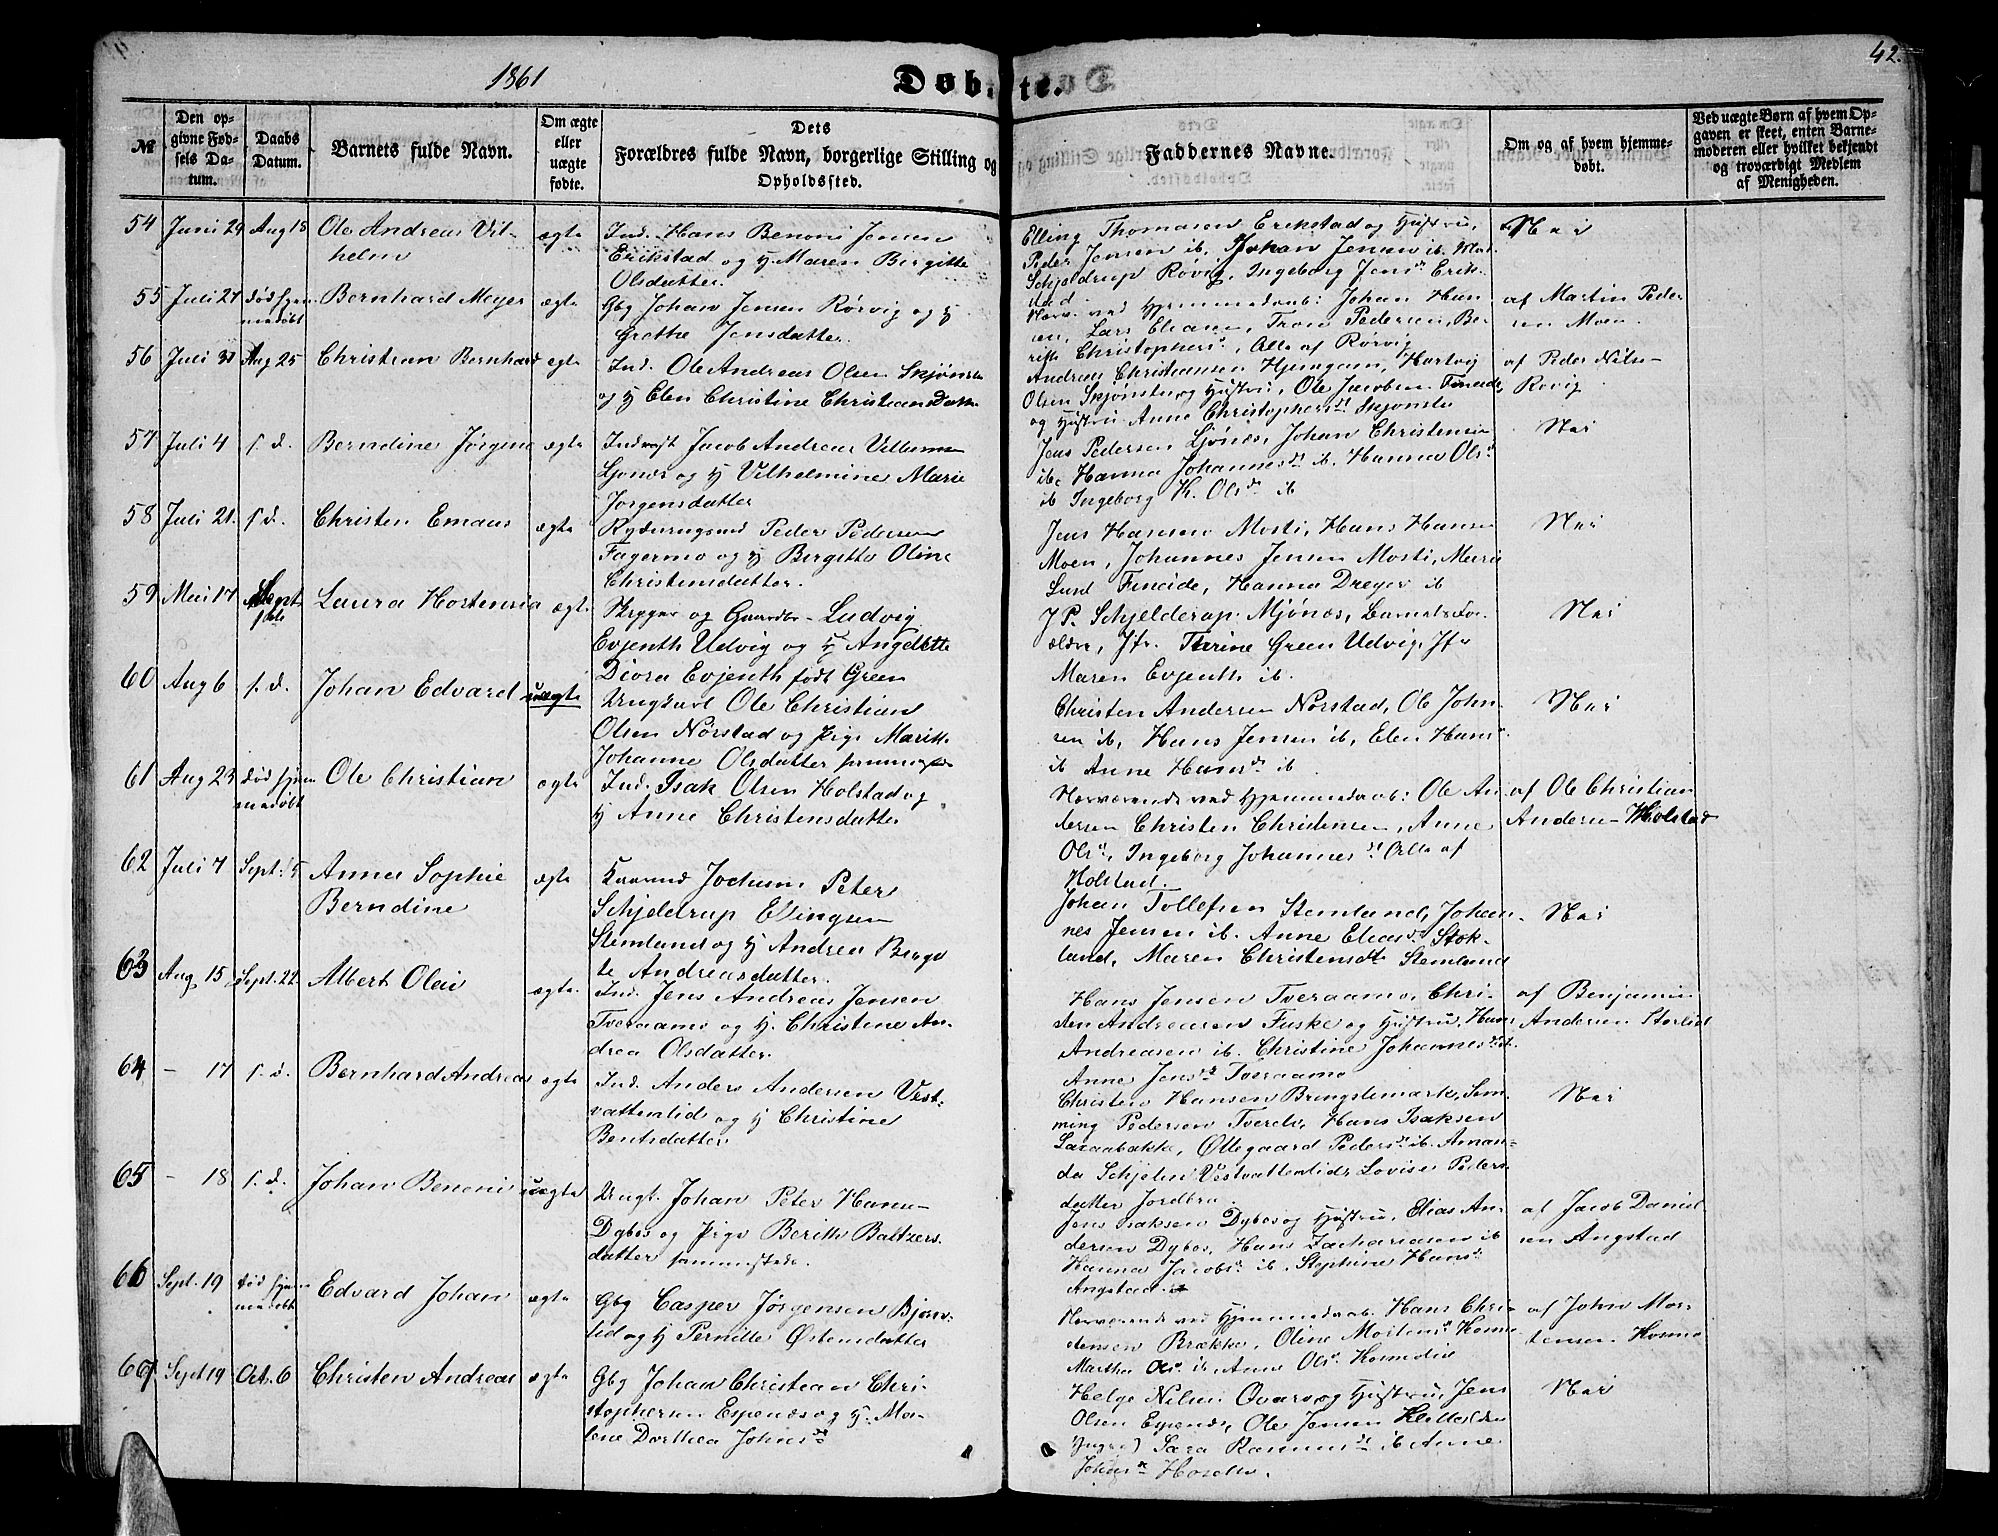 1861
Døbte.
42.
№
Den opgivne Fødsels Datum.
Daabs Datum.
Barnets fulde Navn.
Om ægte eller uægte fødte.
Dets Forældres fulde Navn, borgerlige Stilling og Opholdssted.
Faddernes Navne.
Om og af hvem hjemmedøbt.
Ved uægte Børn af hvem Opgaven er skeet, enten Barnemoderen eller hvilket bekjendt og troværdigt Medlem af Menigheden.
54 Juni 29 Aug 18 Ole Andreas Vilhelm ægte
Ind. Hans Benoni Jensen
Erikstad og H Maren Birgitte
Olsdatter.
Elling Thomasen Erikstad og Hustru,
Peder Jensen ib, Johan Jensen ib.
Schjeldrup Røvig, Ingeborg Jensdr Erikstad
Nei
55 Juli 27 død hjemmedøbt Bernhard Meyer ægte
Gbg Johan Jensen Rørvig og H
Grethe Jensdatter.
Nærv. ved Hjemmedaab: Johan Hansen,
Lars Eliasen, Tron Pedersen, Berith
Christophersd, Alle af Rørvig
af Martin Pedersen
Moen.
56 Juli 31 Aug 25 Christian Bernhard ægte
Ind. Ole Andreas Olsen Skjønstu
og H Elen Christine Christiansdatter
Andreas Christiansen Hjemgam, Hartvig
Olsen Skjønstu og Hustru, Ole Jacobsen Fineide,
og Hustru Anne Christophersdt Skjønstu
af Peder Nilsen
Røvig
57 Juli 4 s. d. Berndine Jørgine ægte
Indvast Jacob Andreas Villumsen
Ljønes og H Vilhelmine Marie
Jørgensdatter
Jens Pedersen Ljønes, Johan Christensen
ib, Hanna Johannesdt ib, Hanna Olsd
ib Ingeborg K. Olsdr ib
Nei
58 Juli 21. s. d. Christen Emaus ægte
Rydningsmd Peder Pedersen
Fagermo og H Birgitte Oline
Christensdatter.
Jens Hansen Mosti, Hans Hansen
Moen, Johannes Jensen Mosti, Marie
Lund Fineide, Hanna Dreyer ib
Nei
59 Mai 17 Sept 1ste Laura Hortensia ægte
Skipper og Gaardbr Ludvig
Evjenth Udvig og H Angelette
Diora Evjenth født Green
J P. Schjelderup Mjønes, Barnets Forældre,
Jfr. Thrine Green Udvig, Jfr
Maren Evjenth ib.
Nei
60 Aug 6 s. d. Johan Edvard uægte
Ungkarl Ole Christian
Olsen Nørstad og Pige Marith
Johanne Olsdatter sammested
Christen Andersen Nørstad, Ole Johnsen
ib, Hans Jensen ib, Elen Hansd
ib Anne Hansdr ib
Nei
61 Aug 23 død hjemmedøbt Ole Christian ægte
Ind. Isak Olsen Holstad og
H Anne Christensdatter
Nærværende ved Hjemmedaab: Ole Andersen
Christen Christensen, Anne
Olsd, Ingeborg Johannesdt Alle af
Holstad.
af Ole Christian
Andersen Holstad
62 Juli 7 Sept. 15 Anna Sophie
Berndine ægte
Huusmd Jochum Peter
Schjeldrup Ellingsen
Stemland og H Andrea Birgitte
Andreasdatter.
Johan Tollefsen Stemland, Johannes
Jensen ib. Anne Eliasd. Stokland,
Maren Christensdt Stemland
Nei
63 Aug 15 Sept. 22 Albert Olai ægte.
Ind. Jens Andreas Jensen
Tveraamo og H. Christine Andrea
Olsdatter.
Hans Jensen Tveraamo, Christen
Andreasen Fuske og Hustru, Hans
Andreasen ib. Christine Johannesdt.
Anne Jensdt Tveraamo
af Benjamin
Andersen Storlid
64 – 17 s. d. Bernhard Andreas ægte
Ind. Anders Andersen Vestvattenlid
og H Christine
Bentsdatter
Christen Hansen Bringslimark, Semming
Pedersen Tverelv, Hans Isaksen
Laxaabakke, Øllegaard Pedersdt ib. Amanda
Schjelm Vestvattenlid, Lovise Pedersdatter
Jordbru.
Nei
65 – 18 s. d. Johan Benoni uægte
Ungk. Johan Peter Hansen
Dybos og Pige Berith Baltzersdatter
sammesteds.
Jens Isaksen Dybos og Hustru, Elias Andersen
Dybos, Hans Zachariasen ib
Hanna Jacobsd ib. Stephine Hansd
Angstad.
af Jacob Danielsen
Angstad
66 Sept. 19 død hjemmedøbt Edvard Johan ægte
Gbg Casper Jørgensen Bjørnlid
og H Pernille Østensdatter
Nærværende ved Hjemmedaab. Hans Christensen
Brække, Oline Mortensd
Martha Olsd ib Anne Olsd
af John Mortensen
67 Sept 19 Oct. 6 Christen Andreas ægte
Gbg Johan Christian Christophersen
Espenes og H. Malene
Dorthea Johnsdt
Helge Nilsen Qvarv og Hustru, Jens
Olsen Espenes, Ole Jensen Kletten (den
Yngre) Sara Rasmusdt ib Anne
Johnsdt
Nei